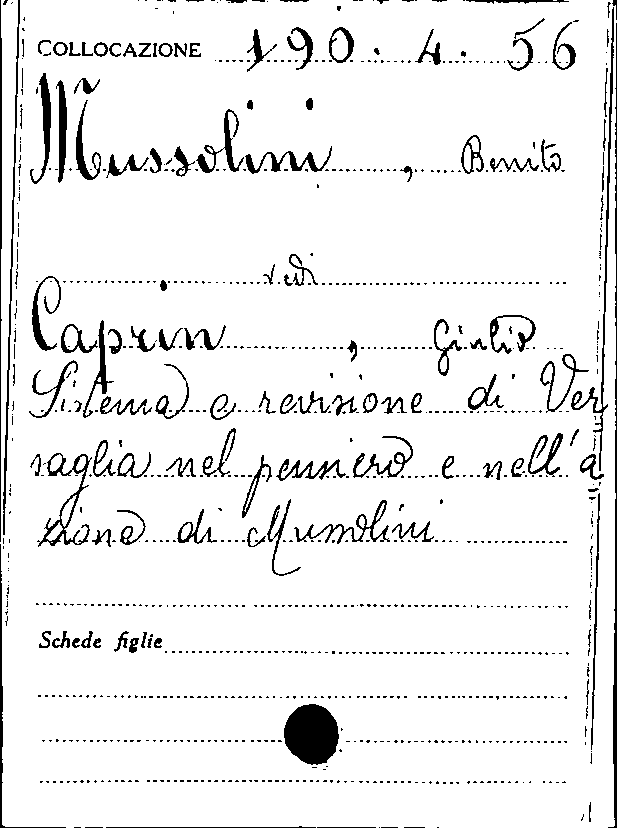 COLLOCAZIONE 190. 4. 56
Mussolini, Benito
vedi
Caprin, Giulio
Sistema e revisione di Ver
saglia nel pensiero e nell'a
zione di Mussolini
Schede figlie